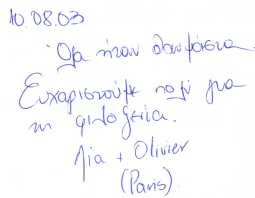 10 08.03
Όλα ήταν θαυμάσια.
Ευχαριστούμε πολύ για
τη φιλοξενία.
Λία + Olivier
(Paris)